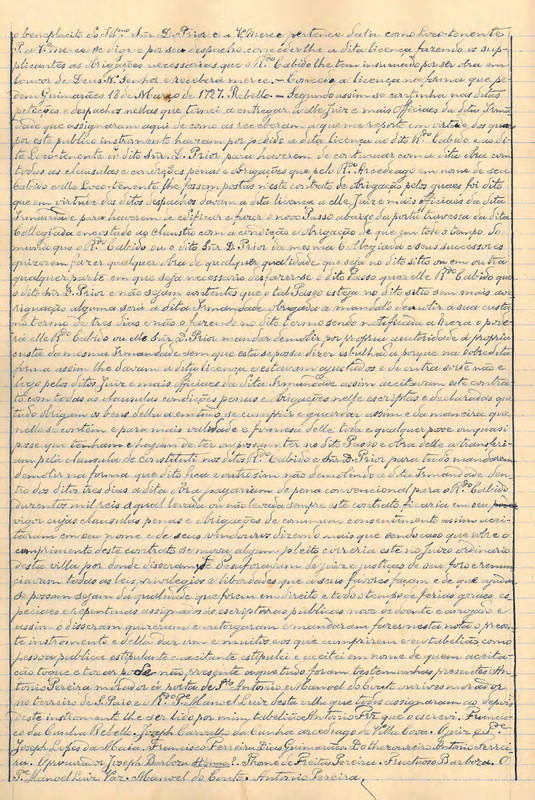 o beneplacito do Ill.mo Snr D. Prior e a V.ª Merce pertence dalla como Loco-tenente
P. a V.ª merce se digne por seu despacho conceder-lhe a dita licença fazendo os sup-
plicantes as obrigações necessarias que o R.do Cabido lhe tem insinuado por ser obra em
louvor de Deus N. Senhor e receberá merce. — Concedo a licença na forma que pe-
dem Guimarães 13 de Março de 1727. Rebello. — Segundo assim se continha nas ditas
petições e despachos nellas que tornei a entregar a elle Juiz e mais officiaes da dita Irman-
dade que assignaram aqui de como as receberam a que me reporto em virtude dos quaes
por este publico instromento haviam por pedido a dita licença ao dito R.do Cabido e ao di-
to Loco-tenente do dito Snr. D. Prior para haverem de continuar com a dita obra com
todas as clausulas e condições penas e obrigações que pelo R.do Arcediago em nome de seu
Cabido e elle Loco-tenente lhe fossem postas neste contrato de obrigação, pelos quaes foi dito
que em virtude dos ditos despachos davam a dita licença a elle Juiz e mais officiaes da dita
Irmandade para haverem de edificar e fazer o novo Passo abaixo da porta travessa da dita
Collegiada encostado ao Claustro com a condição e obrigação de que em todo o tempo. So
mente que o R.do Cabido ou o dito Snr. D. Prior da mesma Collegiada e seus successores
quizerem fazer qualquer obra de qualquer qualidade que seja no dito sitio ou em outra
qualquer parte em que seja necessario desfazer-se o dito Passo quer elle R.do Cabido quer
o dito Snr. D. Prior e não sejam contentes que o tal Passo esteja no dito sitio sem mais ave-
riguação alguma será a dita Irmandade obrigada a mandal-o demolir á sua custa
no termo de tres dias e não o fazendo no dito termo sendo notificada a Meza e pode-
rá elle R.do Cabido ou elle Snr. D. Prior mandar demolir por propria auctoridade á propria
custa da mesma Irmandade sem que esta se possa dizer esbulhada porque na sobredita
forma assim lhe davam a dita licença e estavam ajustados e de outra sorte não e
logo pelos ditos Juiz e mais officiaes da dita Irmandade assim aceitavam este contra-
to com todas as clausulas condições penas e obrigações nelle escriptas e declaradas que
tudo obrigam os bens della a em tudo se cumprir e guardar assim e da maneira que
nelle se contém e para mais validade e firmesa delle toda e qualquer posse ou quasi
posse que tenham e hajam de ter ou possam ter no dito Passo e obra delle a transferi-
am pela clausula de Constituti nos ditos R.do Cabido e Snr D. Prior para tudo mandarem
demolir na forma que dito fica e outrosim não demolindo a dita Irmandade den-
tro dos ditos tres dias a dita obra pagariam de pena convencional para o R.do Cabido
duzentos mil reis a qual levada ou não levada sempre este contrato ficaria em seu
vigor cujas clausulas penas e obrigações de commum consentimento assim acei-
taram em seu nome e de seus vindouros dizendo mais que sendo caso que sobre o
comprimento deste contrato se mova algum pleito correria este no Juizo ordinario
desta villa por donde disseram se desaforavam de juiz e justiças de seu foro e renun-
ciavam todas as leis, privilegios e liberdades que a seus favores façam e de que ajudar
se possam sejam da qualidade que forem em direito e todo o tempo de ferias geraes es-
peciaes e repentinas assignados as escripturas publicas nova de doente e anojado e
assim o disseram quizeram e outorgaram e mandaram fazer nesta nota o presen-
te instromento e della dar um e muitos e os que cumprirem e eu tabelião como
pessoa publica estipulante e aceitante estipulei e aceitei em nome de quem aceita-
cão toque e tocar pode não presente ao que tudo foram testemunhas presentes An-
tonio Pereira morador á porta de S.to Antonio e Manoel do Couto ourives morador
no terreiro de S. Paio e R.do P.e Manoel Luiz desta villa que todos assignaram ao depois
deste instromento lhe ser lido por mim tabelião Antonio Frz que o escrevi. Francis-
co da Cunha Rebello. Joseph Carvalho da Cunha arcediago de Villa Cova. O juiz P.e
Joseph Lopes da Maia. Francisco Ferreira Dias Guimarães. O thezoureiro Antonio Ferrei-
ra. O procurador Joseph Barboza. Thome de Freitas Pereira. Fructuoso Barboza. O
P.e Manoel Luiz Vaz. Manoel do Couto. Antonio Pereira.